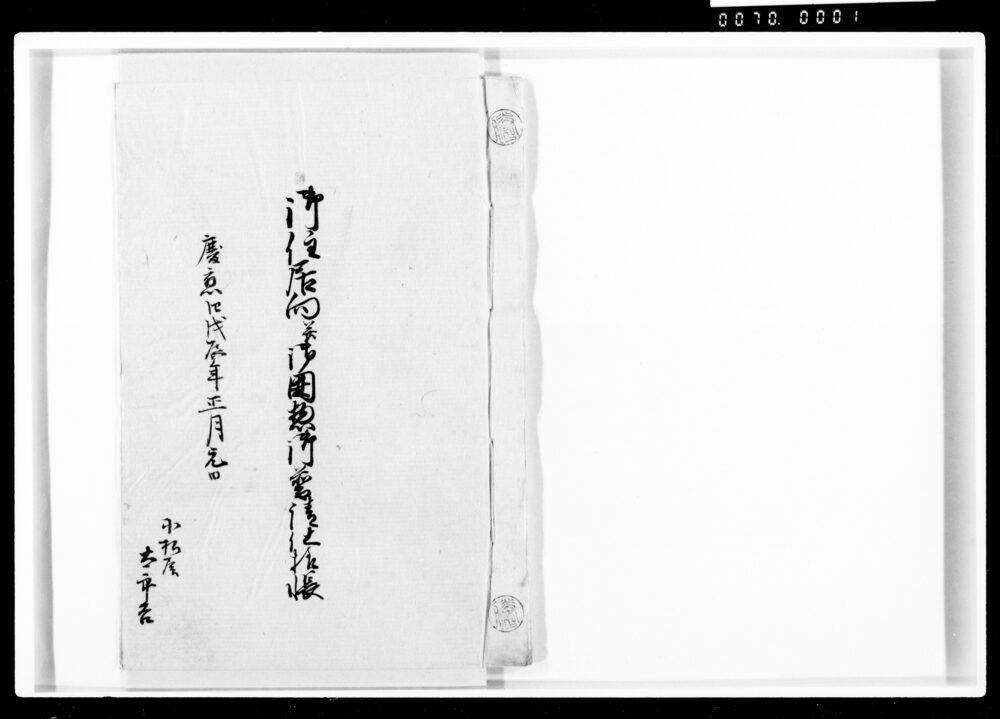 0070. 0001
御住居向並御囲惣御普請仕様帳
慶応四戊辰年正月元日
小松屋
太郎吉